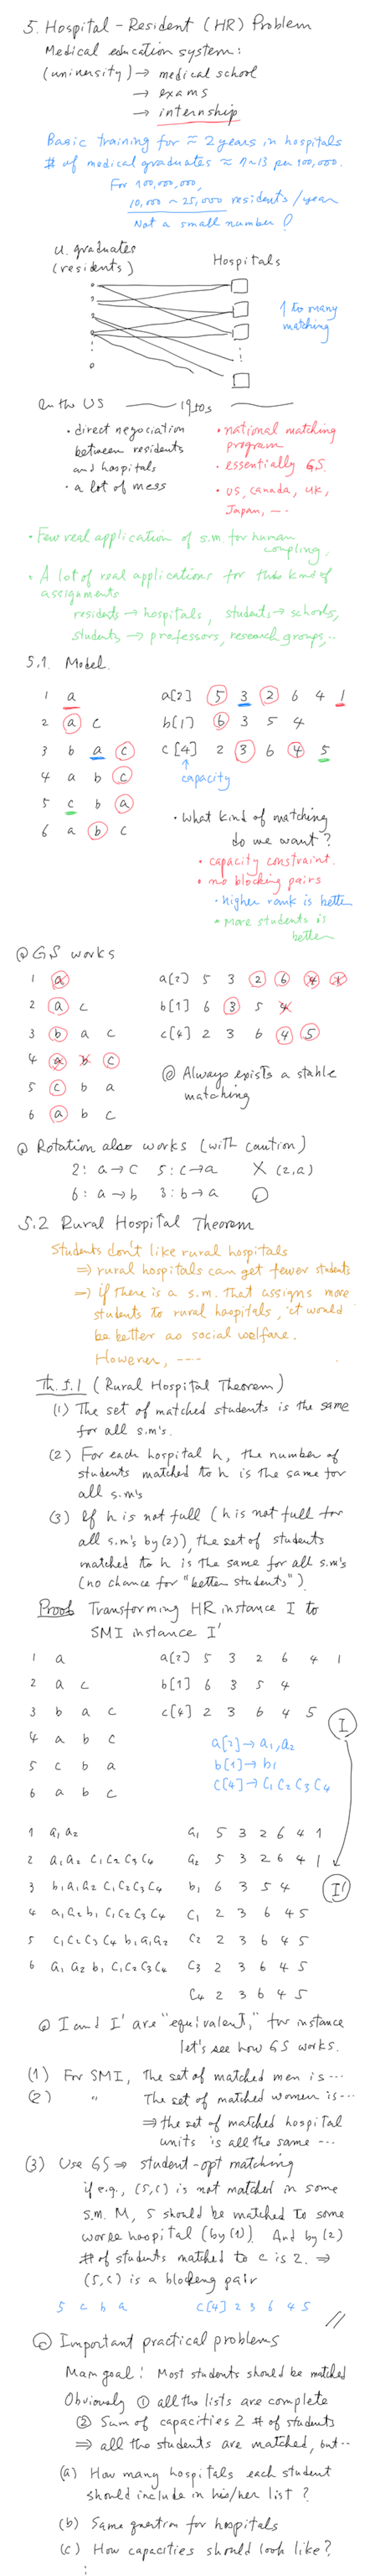 5. Hospital-Resident (HR) Problem
Medical education system:
(university) → medical school
→ exams
→ internship
Basic training for ≈ 2 years in hospitals
# of medical graduates ≈ 7~13 per 100,000.
For 100,000,000,
10,000 ~ 25,000 residents/year
Not a small number!
u. graduates
(residents)
Hospitals
1 to many
matching
In the US 1950s
· direct negociation
between residents
and hospitals
· a lot of mess
· national matching
program
· essentially GS.
· US, Canada, UK,
Japan, ...
· Few real application of s.m. for human
coupling.
· A lot of real applications for this kind of
assignments
residents → hospitals, students → schools,
students → professors, research groups, ...
5.1. Model.
1 a a[2] 5 3 2 6 4 1
2 a c b[1] 6 3 5 4
3 b a c c[4] 2 3 6 4 5
4 a b c
capacity
5 c b a
6 a b c
· What kind of matching
do we want?
· capacity constraint.
· no blocking pairs
· higher rank is better
· More students is
better
@ GS works
1 a a[2] 5 3 2 6 4 1
2 a c b[1] 6 3 5 4
3 b a c c[4] 2 3 6 4 5
4 a b c
5 c b a
6 a b c
@ Always exists a stable
matching
@ Rotation also works (with caution)
2: a → c 5: c → a X (2,a)
6: a → b 3: b → a
5.2 Rural Hospital Theorem
Students don't like rural hospitals
⇒ rural hospitals can get fewer students
⇒ if there is a s.m. that assigns more
students to rural hospitals, it would
be better as social welfare.
However, ....
Th. 5.1 (Rural Hospital Theorem)
(1) The set of matched students is the same
for all s.m's.
(2) For each hospital h, the number of
students matched to h is the same for
all s.m's
(3) If h is not full (h is not full for
all s.m's by (2)), the set of students
matched to h is the same for all s.m's
(no chance for "better students").
Proof Transforming HR instance I to
SMI instance I'
1 a a[2] 5 3 2 6 4 1
2 a c b[1] 6 3 5 4
3 b a c c[4] 2 3 6 4 5
4 a b c
5 c b a
6 a b c
a[2] → a1, a2
b[1] → b1
c[4] → c1 c2 c3 c4
I
I'
1 a1 a2 a1 5 3 2 6 4 1
2 a1 a2 c1 c2 c3 c4 a2 5 3 2 6 4 1
3 b1 a1 a2 c1 c2 c3 c4 b1 6 3 5 4
4 a1 a2 b1 c1 c2 c3 c4 c1 2 3 6 4 5
5 c1 c2 c3 c4 b1 a1 a2 c2 2 3 6 4 5
6 a1 a2 b1 c1 c2 c3 c4 c3 2 3 6 4 5
c4 2 3 6 4 5
@ I and I' are "equivalent," for instance
let's see how GS works.
(1) For SMI, the set of matched men is ...
(2) " The set of matched women is ...
⇒ the set of matched hospital
units is all the same ...
(3) Use GS ⇒ student-opt matching
if e.g., (5,c) is not matched in some
s.m. M, 5 should be matched to some
worse hospital (by (1)) And by (2)
# of students matched to c is 2. ⇒
(5,c) is a blocking pair
5 c b a c[4] 2 3 6 4 5
//
@ Important practical problems
Main goal: Most students should be matched
Obviously ① all the lists are complete
② Sum of capacities ≥ # of students
⇒ all the students are matched, but ...
(a) How many hospitals each student
should include in his/her list?
(b) Same question for hospitals
(c) How capacities should look like?
⋮